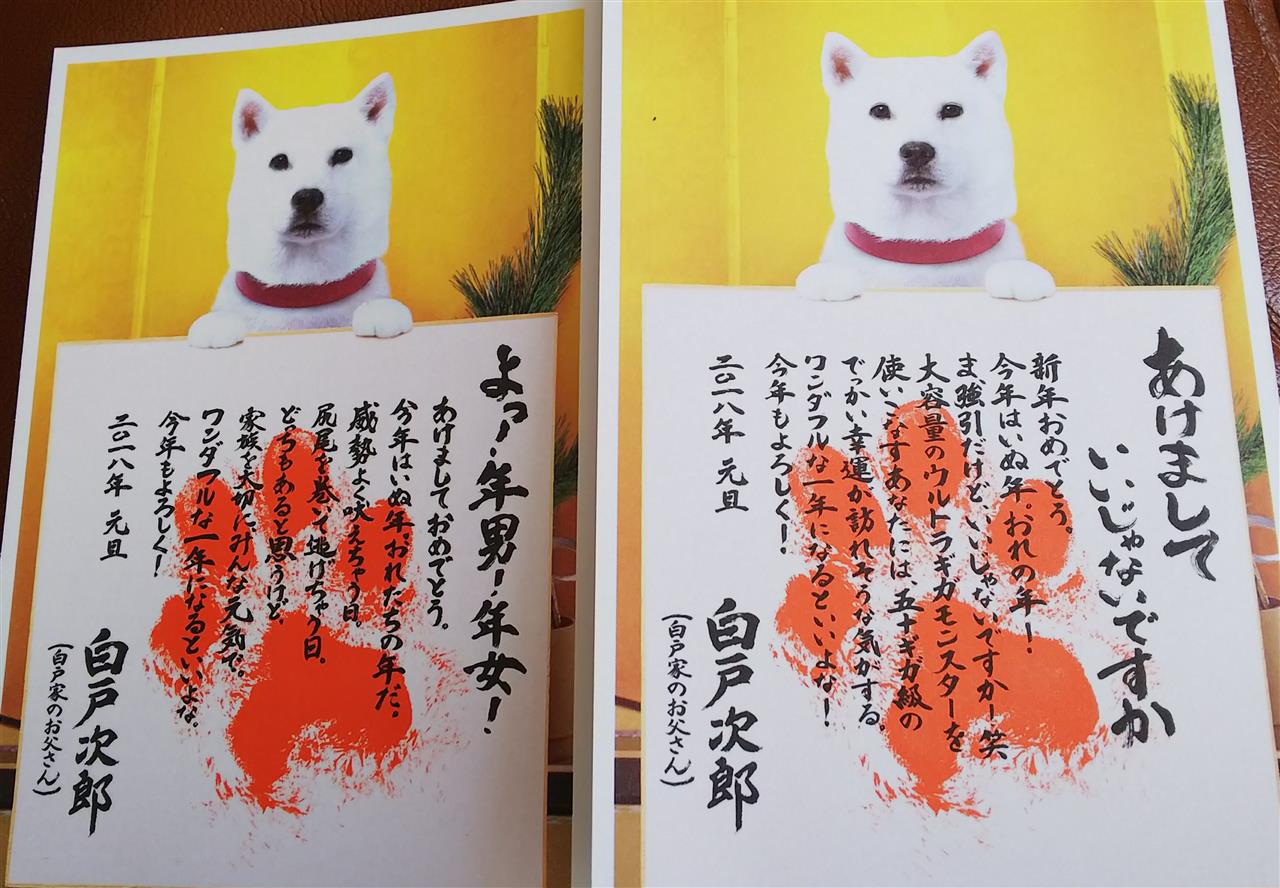 よっ！年男！年女！
あけましておめでとう。
今年はいぬ年。おれたちの年だ。
威勢よく吠えちゃう日。
尻尾を巻いて逃げちゃう日。
どっちもあると思うけど、
家族を大切に、みんな元気で。
ワンダフルな一年になるといいよな。
今年もよろしく！
二〇一八年 元旦
白戸次郎
（白戸家のお父さん）
あけまして
いいじゃないですか
新年おめでとう。
今年はいぬ年。おれの年！
ま、強引だけど、いいじゃないですかー笑
大容量のウルトラギガモンスターを
使いこなすあなたには、五十ギガ級の
でっかい幸運が訪れそうな気がする。
ワンダフルな一年になるといいよな！
今年もよろしく！
二〇一八年 元旦
白戸次郎
（白戸家のお父さん）